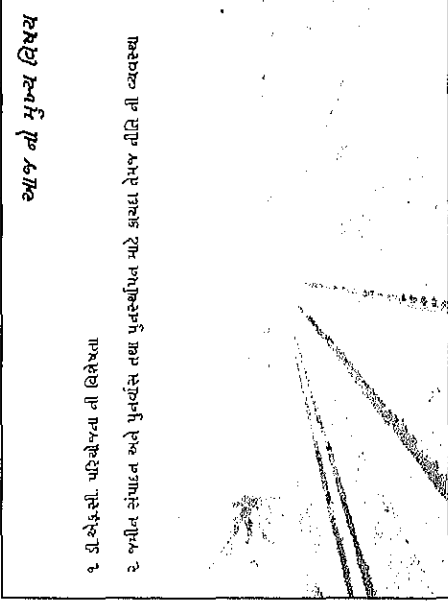 આજ નો મુખ્ય વિષય
૧ ડી.એફ.સી. પરિયોજના ની વિશેષતા
૨ જમીન સંપાદન અને પુનર્વાસ તથા પુનર્સ્થાપન માટે કાયદા તેમજ નીતિ ની વ્યવસ્થા